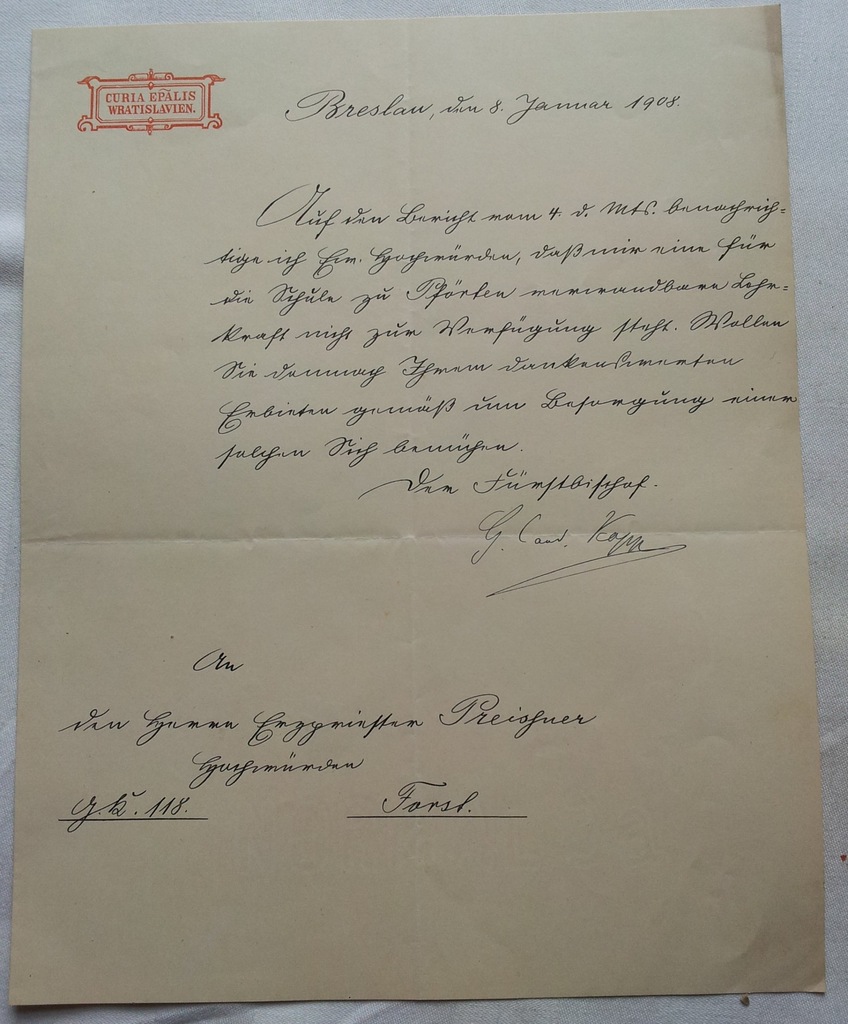 CURIA EPĀLIS
WRATISLAVIEN.
Breslau, den 8. Januar 1908.
Auf den Bericht vom 4. d. Mts. benachrich=
tige ich Ew. Hochwürden, daß mir eine für
die Schule zu Pförten verwendbare Lehr=
kraft nicht zur Verfügung steht. Wollen
Sie demnach Ihrem dankenswerten
Erbieten gemäß um Besorgung einer
solchen Sich bemühen.
Der Fürstbischof.
G. Card. Kopp
An
den Herrn Erzpriester Preishner
Hochwürden
G.K. 118.
Forst.